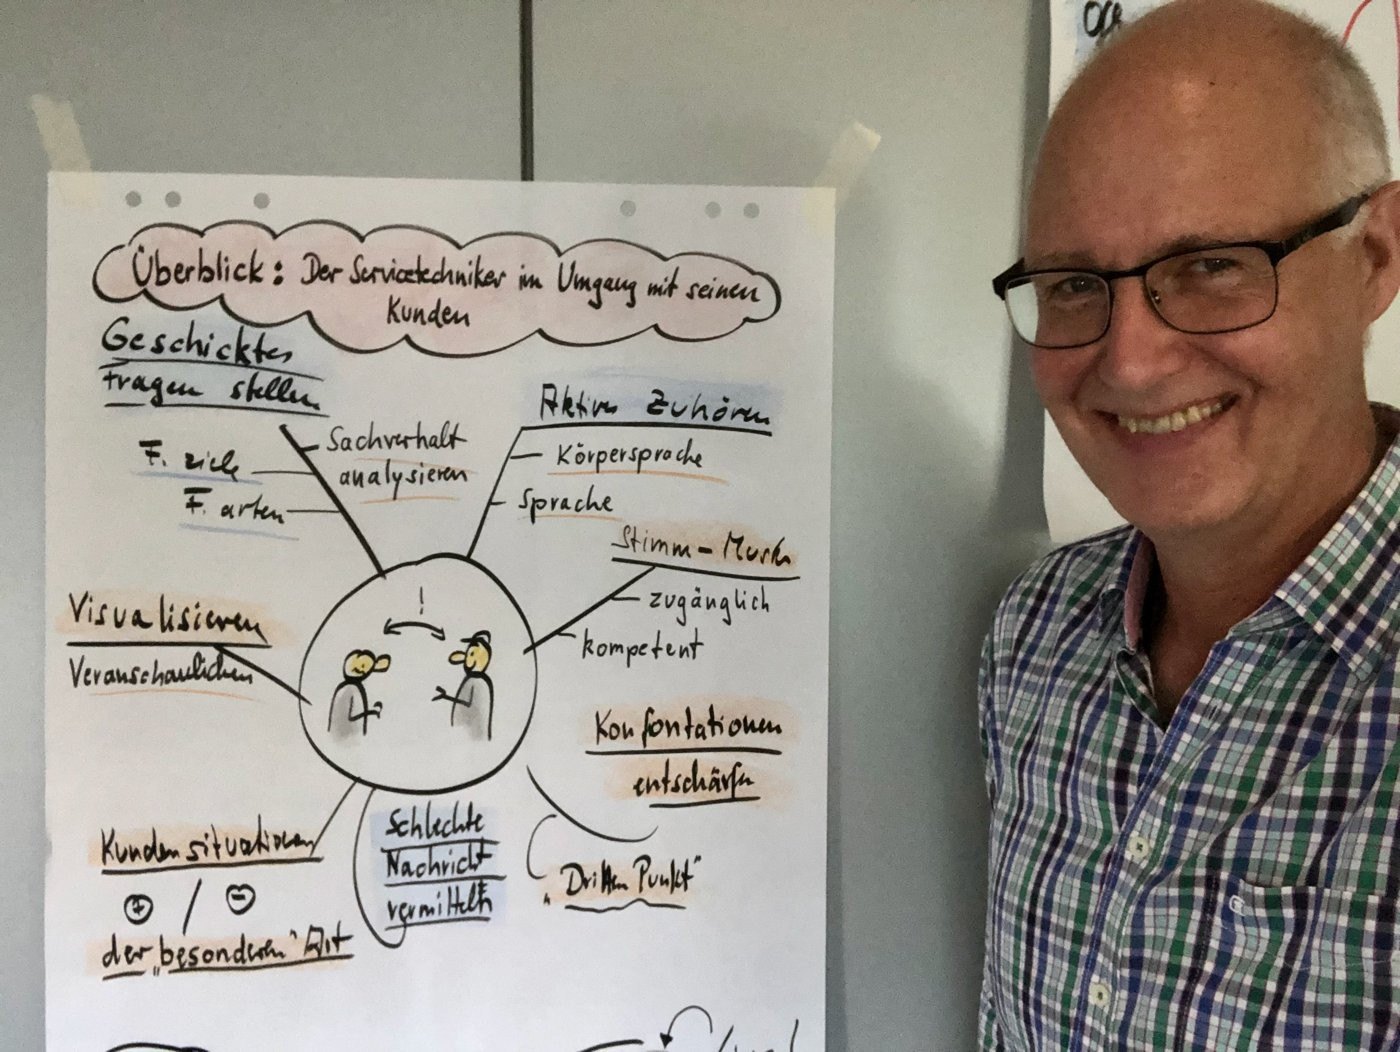 Überblick: Der Servicetechniker im Umgang mit seinen
Kunden
Geschickter
Fragen stellen
Sachverhalt
analysieren
F. ziele
F. arten
Aktives Zuhören
Körpersprache
Sprache
Stimm-Muster
zugänglich
kompetent
!
Visualisieren
Veranschaulichen
Konfontationen
entschärfen
"Dritten Punkt"
Schlechte
Nachricht
vermitteln
Kundensituationen
+ / -
der "besonderen" Art